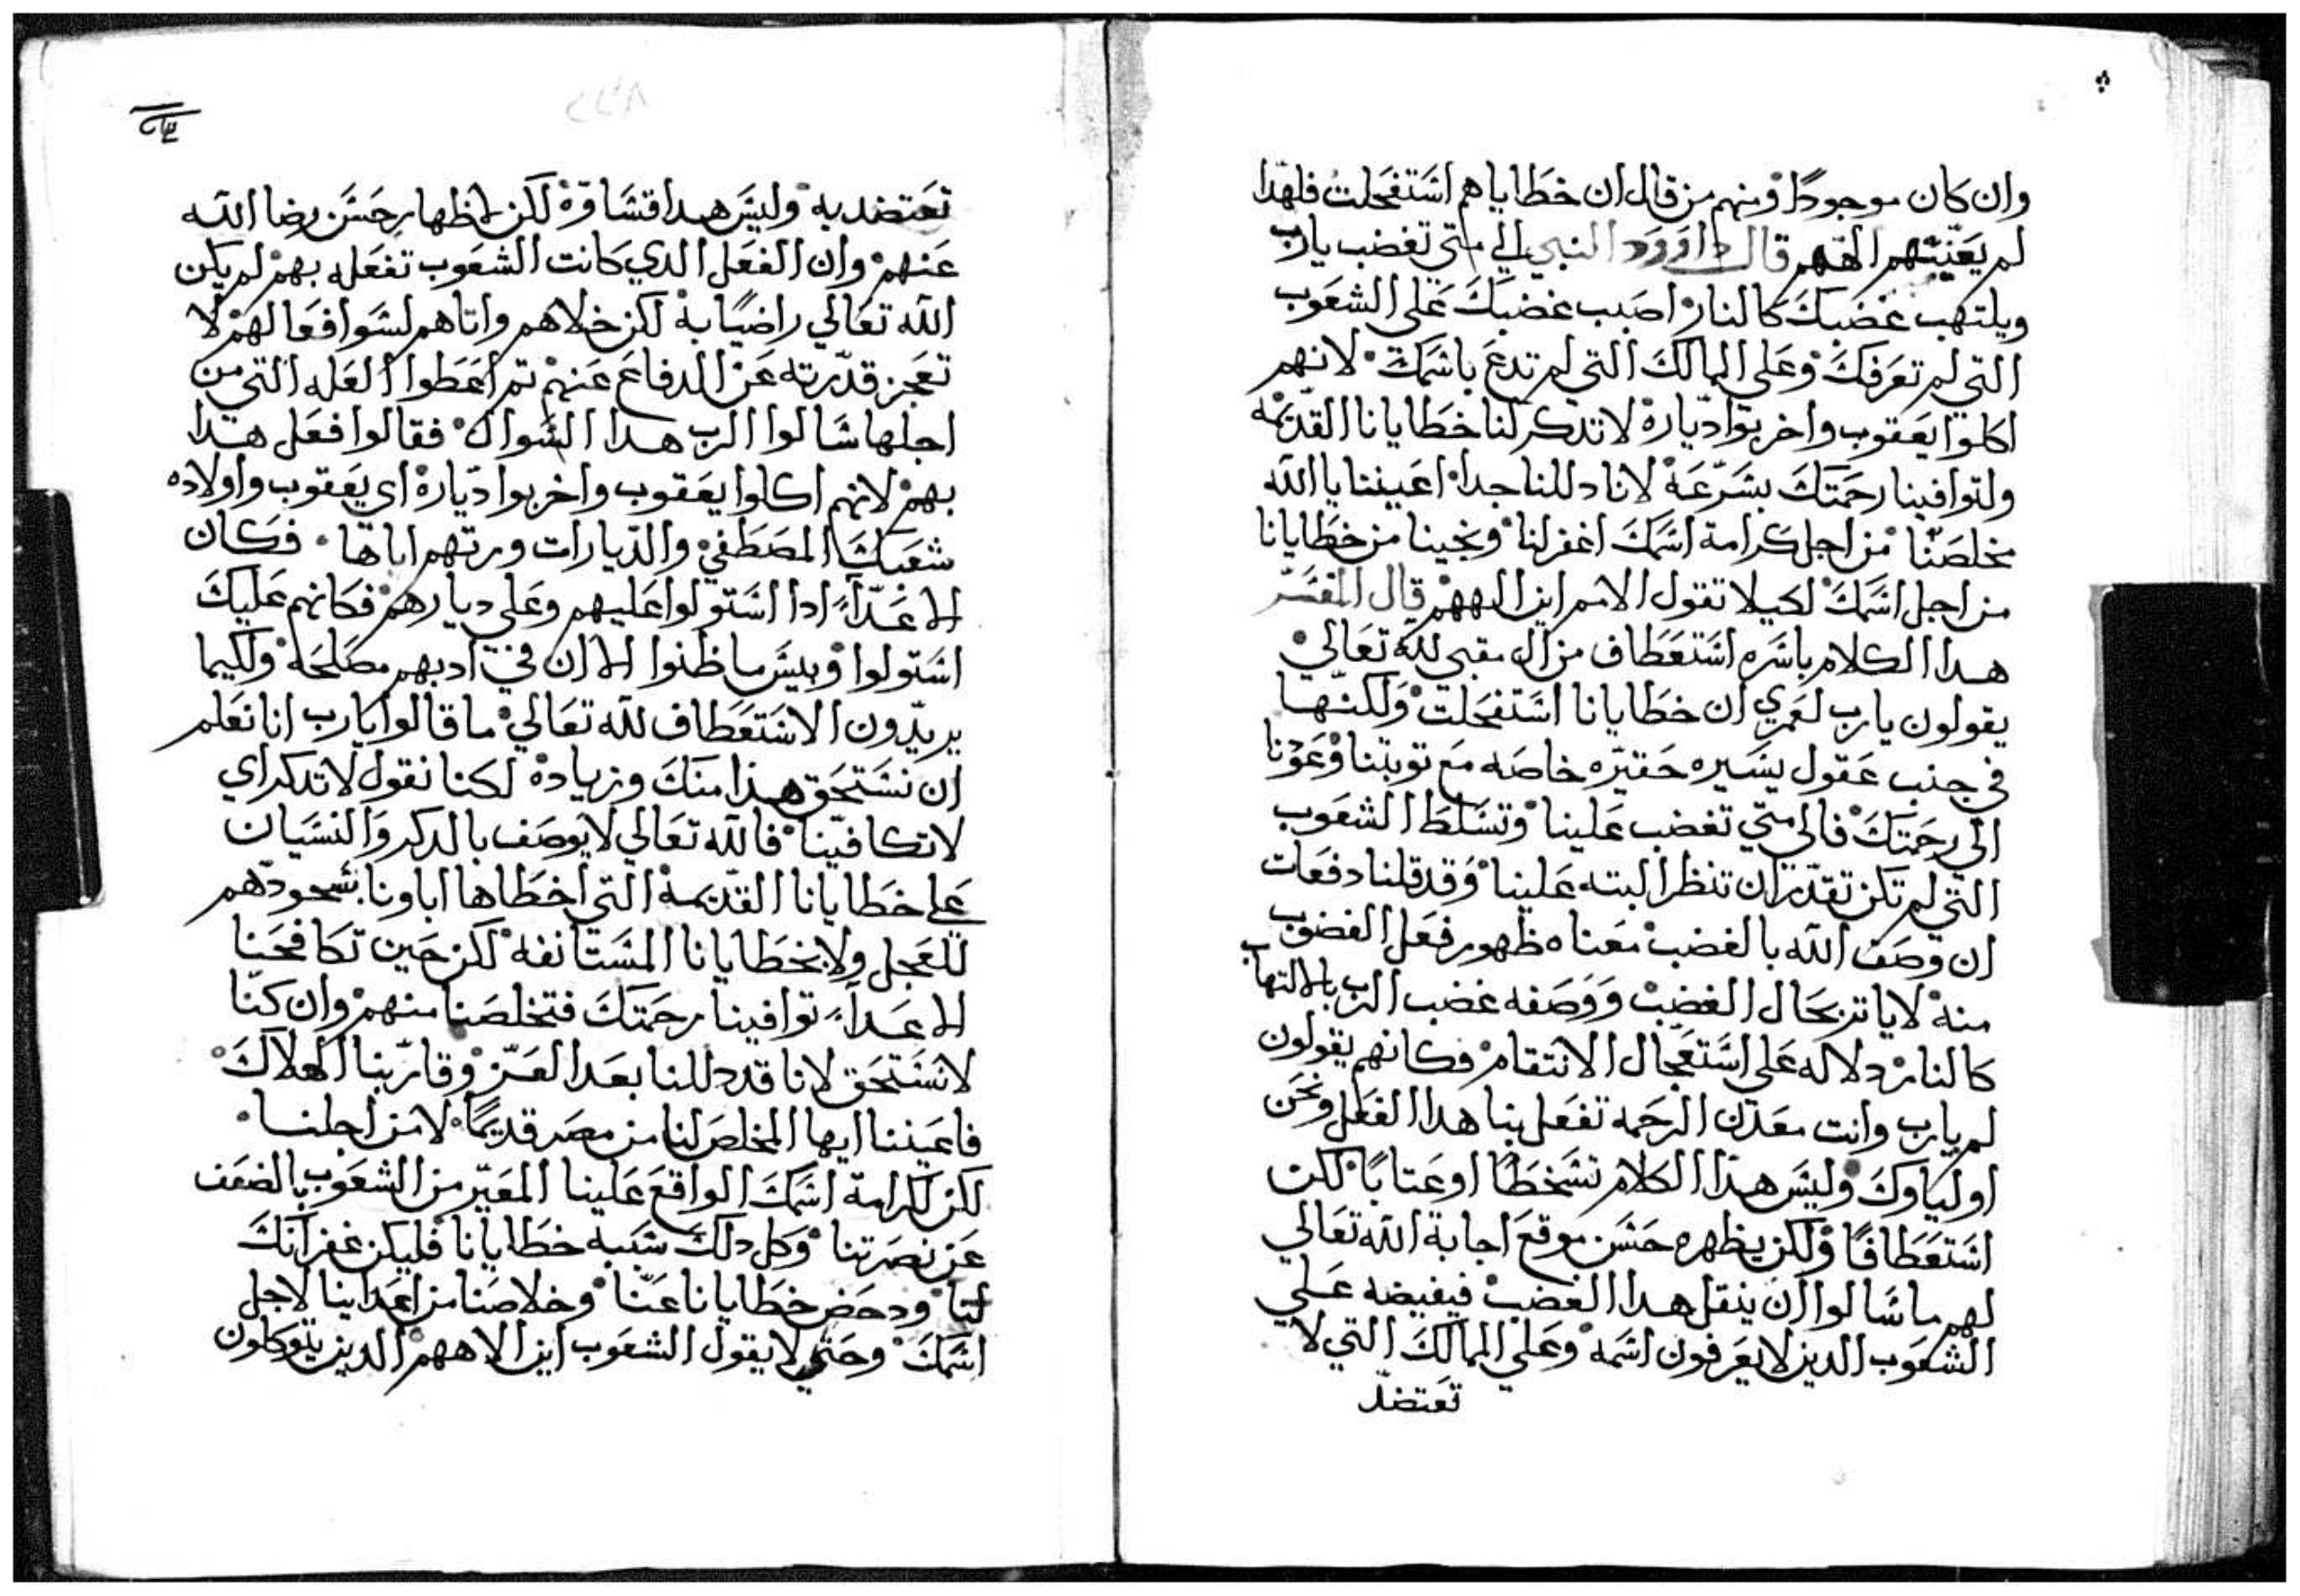 وان كان موجودًا ومنهم من قال ان خطاياهم اشتفحلت فلهدا
لم يغيثهم الههم قال داوود النبي الي متي تغضب يارب
ويلتهب غضبك كالنار اصبب غضبك علي الشعوب
التي لم تعرفك وعلي الممالك التي لم تدع باشمك لانهم
اكلوا يعقوب واخربوا دياره لا تدكر لنا خطايانا القديمه
ولتوافينا رحمتك بشرعة لانا دللنا جدا اعيننا يا الله
مخلصنا من اجل كرامة اشمك اغفر لنا ونجينا من خطايانا
من اجل اشمك لكيلا تقول الامم اين الههم قال المفشر
هدا الكلام باشره اشتعطاف من ال مقبي لله تعالي
يقولون يارب لعمري ان خطايانا اشتفحلت ولكنها
في جنب عقول يشيره حقيره خاصه مع توبتنا وعودنا
الي رحمتك فالي متي تغضب علينا وتشلط الشعوب
التي لم تكن تقدر ان تنظر البته علينا وقد قلنا دفعات
ان وصف الله بالغضب معناه ظهور فعل الغضوب
منه لا ياتر بحال الغضب ووصفه غضب الرب بالالتهاب
كالنار دلاله علي اشتعجال الانتقام فكانهم يقولون
لم يارب وانت معدن الرحمه تفعل بنا هدا الفعل ونحن
اولياوك وليش هدا الكلام تشخطًا او عتابًا لكن
اشتعطافًا ولكن يظهره حشن موقع اجابة الله تعالي
لهم ما شالوا ان ينقل هدا الغضب فيفيضه علي
الشعوب الدين لا يعرفون اشمه وعلي الممالك التي لا
تعتضد
تعتضد به وليش هدا قشاوة لكن لاظهار حشن رضا الله
عنهم وان الفعل الدي كانت الشعوب تفعله بهم لم يكن
الله تعالي راضيًا به لكن خلاهم واتاهم لشوا فعالهم لا
تعجز قدرته عن الدفاع عنهم تم اعطوا العله التي من
اجلها شالوا الرب هدا الشوال فقالوا فعل هدا
بهم لانهم اكلوا يعقوب واخربوا دياره اي يعقوب واولاده
شعبك المصطفي والديارات ورتهم اياها فكان
الاعداء ادا اشتولوا عليهم وعلي ديارهم فكانهم عليك
اشتولوا وبيش ما ظنوا الا ان في ادبهم مصلحه ولكيما
يريدون الاشتعطاف لله تعالي ما قالوا يارب انا نعلم
ان نشتحق هدا منك وزياده لكنا نقول لا تدكر اي
لا تكافينا فالله تعالي لا يوصف بالدكر والنشيان
علي خطايانا القديمة التي اخطاها اباونا بشحودهم
للعجل ولا بخطايانا المشتانفه لكن حين تكافحنا
الاعداء توافينا رحمتك فتخلصنا منهم وان كنا
لا نشتحق لانا قد دللنا بعد العز وقاربنا الهلاك
فاعيننا ايها المخلص لنا من مصر قديمًا لا من اجلنا
لكن لكرامة اشمك الواقع علينا المعير من الشعوب بالضعف
عن نصرتنا وكل دلك شببه خطايانا فليكن غفرانك
لنا ودحض خطايانا عنا وخلاصنا من اعداينا لاجل
اشمك وحتي لا يقول الشعوب اين الاههم الدين يتوكلون